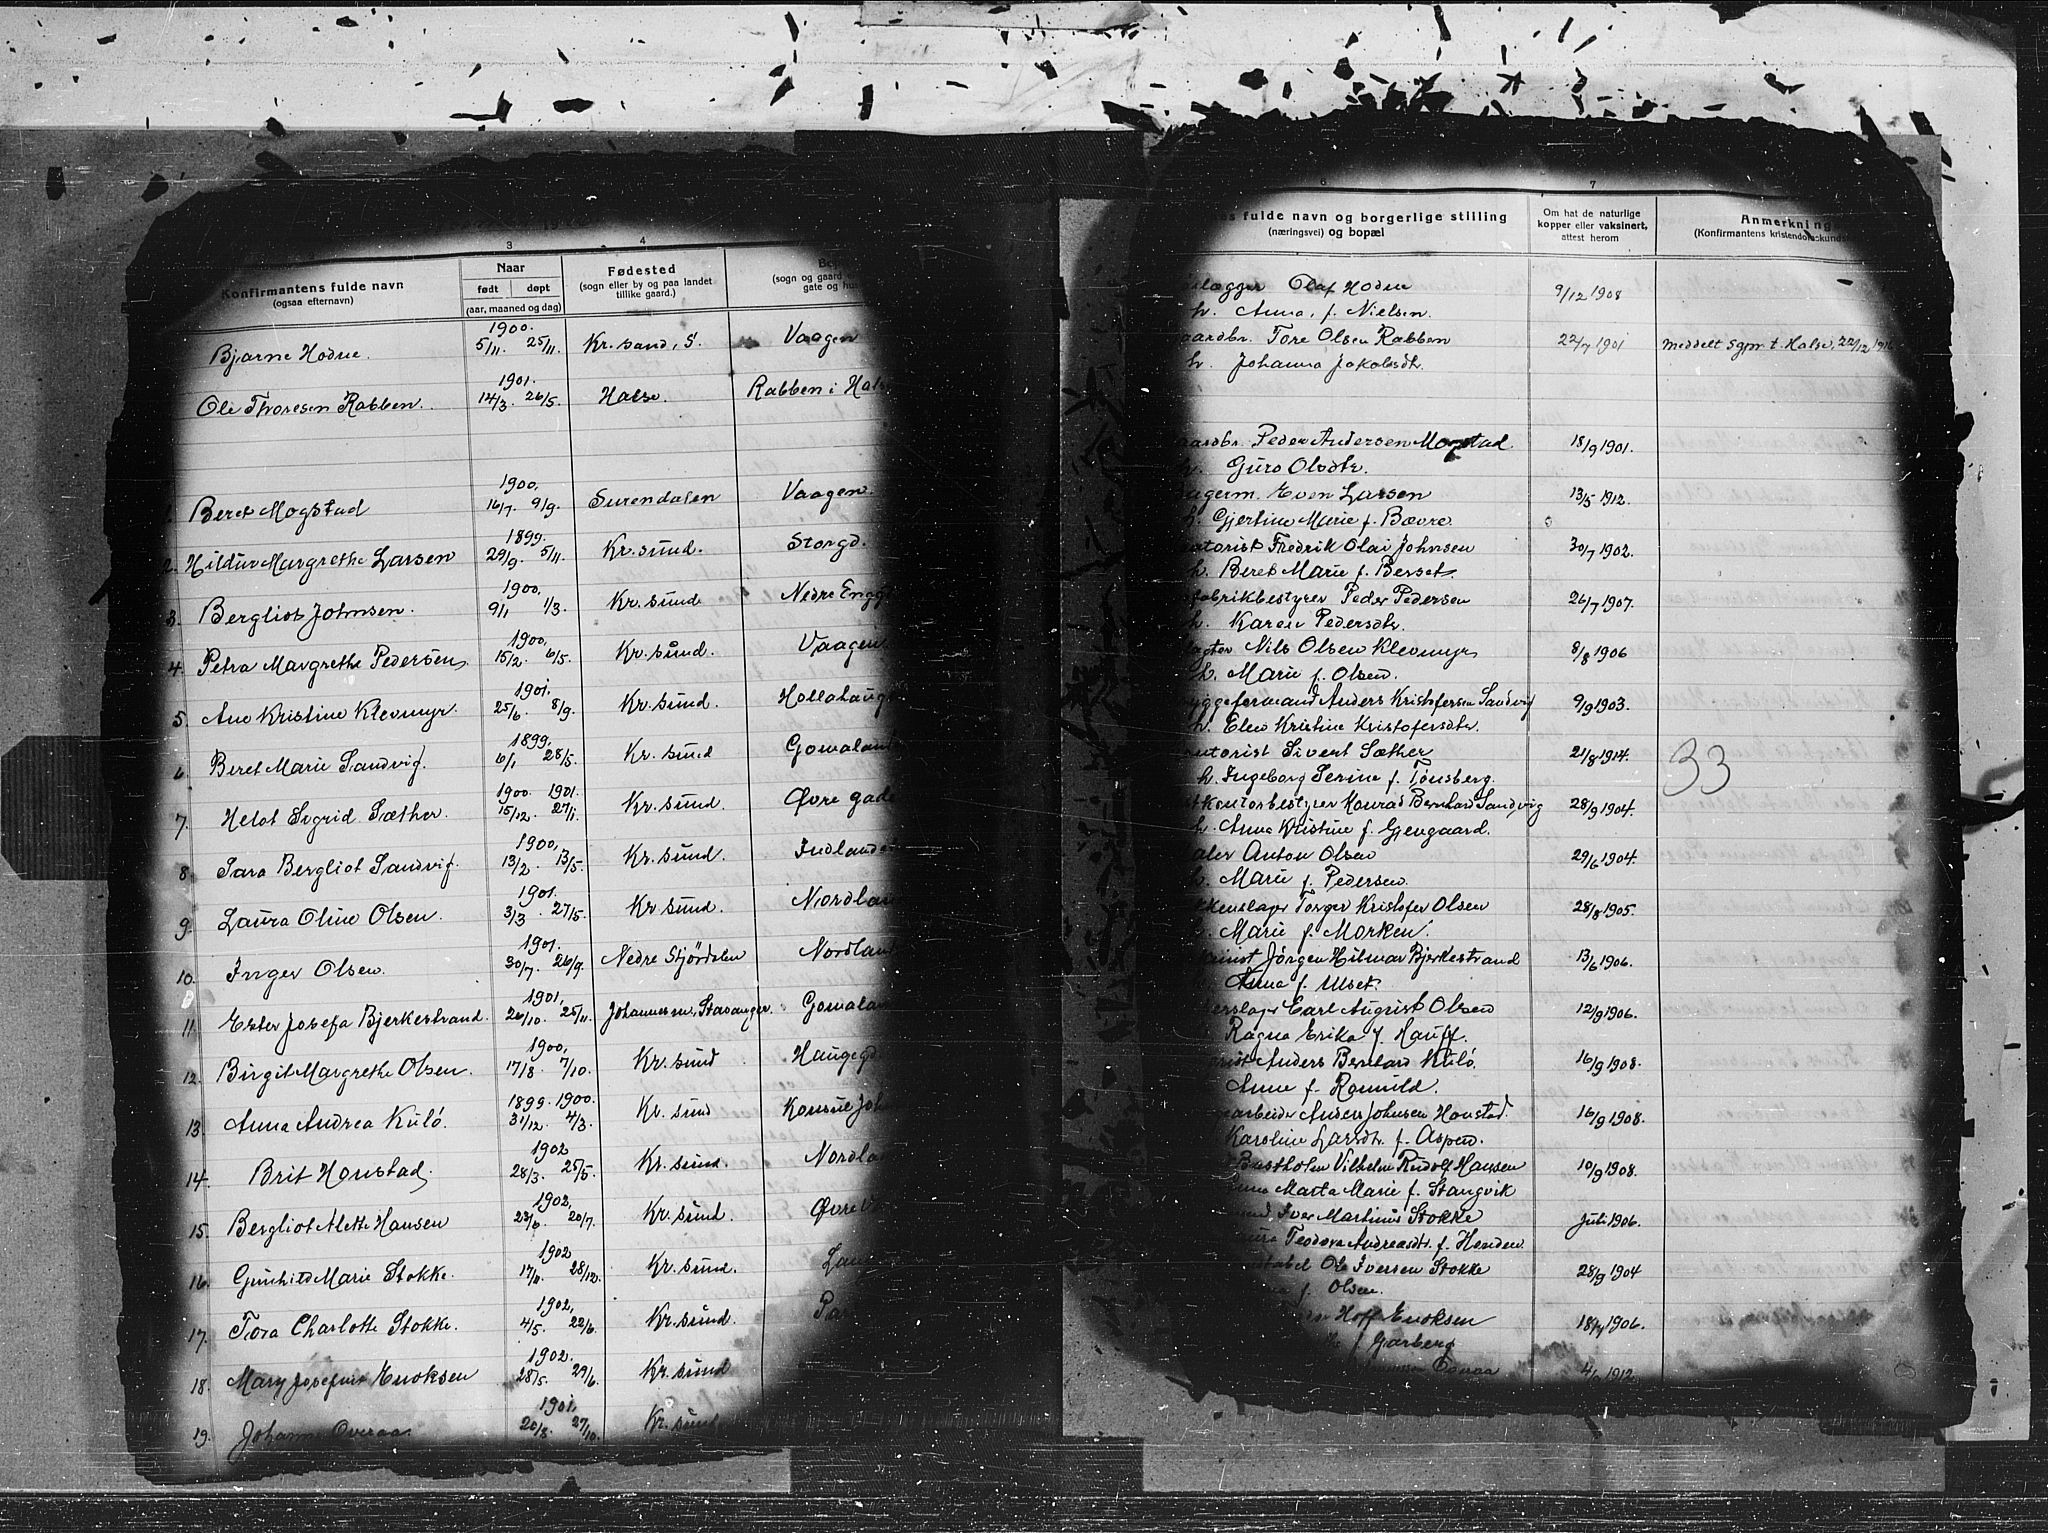 3
4
Konfirmantens fulde navn
(ogsaa efternavn)
Naar
født døpt
(aar, maaned og dag)
Fødested
(sogn eller by og paa landet
tillike gaard.)
(sogn og gaard
gate og hus
1900.
Bjarne Hodne. 5/11. 25/11. Kr.sand, S. Vaagen
1901.
Ole Thoresen Rabben. 14/3. 26/5. Halse. Rabben i Hals
1900.
1. Beret Mogstad 16/7. 9/9. Surendalen Vaagen.
1899.
2. Hildur Margrethe Larsen 29/9. 5/11. Kr.sund. Storgd.
1900.
3. Bergliot Johnsen. 9/1 1/3. Kr.sund Nedre Engg
1900.
4. Petra Margrethe Pedersen 15/2. 6/5. Kr.sund. Vaagen
1901.
5. Ane Kristine Klevmyr. 25/6. 8/9. Kr.sund. Hollahaug
1899.
6. Beret Marie Sandvig. 6/1 28/5. Kr.sund Gomaland
1900. 1901.
7. Sigrid Sæther. 15/12. 27/1. Kr.sund. Øvre gade
1900.
8. Sara Bergliot Sandvig. 13/2. 13/5. Kr.sund. Indlande
1901.
9. Laura Oline Olsen. 3/3. 27/5. Kr.sund. Nordlan
1901.
10. Inger Olsen. 30/7. 26/9. Nedre Stjördalen Nordlan
1901.
11. Ester Josefa Bjerkestrand. 26/10. 25/11. Johannes m., Stavanger. Gomalan
1900.
12. Birgit Margrethe Olsen. 17/8. 7/10. Kr.sund Haugegd.
1899. 1900.
13. Anna Andrea Kulö. 31/12. 4/3. Kr.sund Konsul Joh
1902
14. Brit Honstad. 28/3. 25/5. Kr.sund. Nordlan
1902.
15. Bergliot Alette Hansen 23/6. 20/7. Kr.sund. Øvre V
1902
16. Gunhild Marie Stokke. 17/11. 28/12. Kr.sund. Lan
1902.
17. Tora Charlotte Stokke. 4/5. 22/6. Kr.sund.
1902.
18. Mary Josefine Enoksen 28/5. 29/6. Kr.sund
1901.
19. Johanne Overaa 20/8. 27/10. Kr.sund
6
7
fulde navn og borgerlige stilling
(næringsvei) og bopæl
Om hat de naturlige
kopper eller vaksinert,
attest herom
Anmerkning
(Konfirmantens kristendomskundsk
lægger Olaf Hodne 9/12 1908
h. Anna, f. Nielsen.
aardbr. Tore Olsen Rabben 22/7 1901 Meddelt sgpr. t. Halse, 22/12 1916
h. Johanna Jakobsdtr.
aardbr. Peder Andersen Mogstad 18/9 1901.
h. Guro Olsdtr.
agerm. Even Larsen 13/5 1912.
h. Gjertine Marie f. Bævre.
otorist Fredrik Olai Johnsen 30/7 1902.
h. Beret Marie f. Berset.
fabrikbestyrer Peder Pedersen 26/7 1907.
h. Karen Pedersdtr.
Nils Olsen Klevmyr 8/8 1906
h. Marie f. Olsen.
yggeformand Anders Kristofersen Sandvig 9/9 1903.
h. Elen Kristine Kristofersdtr.
ontorist Sivert Sæther 21/8 1914.
h. Ingeborg Serine f. Tønsberg.
33
kontorbestyrer Konrad Bernhard Sandvig 28/9 1904.
h. Anna Kristine f. Gjengaard.
aler Anton Olsen 29/6 1904.
h. Marie f. Pedersen.
kkenslager Torger Kristofer Olsen 28/8 1905.
h. Marie f. Morken.
inist Jørgen Hilmar Bjerkestrand 13/6 1906.
Anna f. Ulset.
erslager Carl August Olsen 12/9 1906.
Ragna Erika f. Hauff.
rist Anders Bernhard Kulö 16/9 1908.
Anne f. Romuld.
earbeider Anders Johnsen Honstad. 16/9 1908.
Karoline Larsdtr. f. Aspen.
Vilhelm Rudolf Hansen 10/9 1908.
Marta Marie f. Stangvik
Iver Martinus Stokke Juli 1906.
Teodora Andreasdtr. f. Henden.
stabel Ole Iversen Stokke 28/9 1904
f. Olsen.
Hoff Enoksen 18/7 1906.
f. Garberg
Overaa 1912.